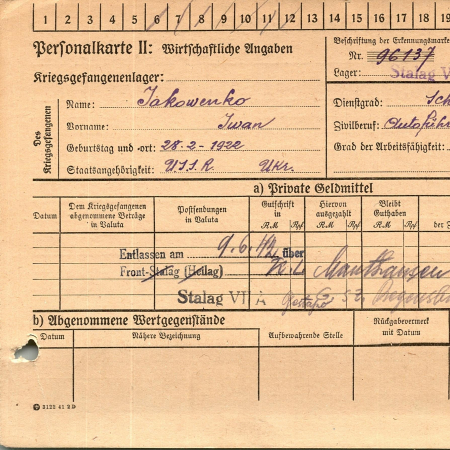 1 2 3 4 5 6 7 8 9 10 11 12 13 14 15 16 17 18 19
Personalkarte II: Wirtschaftliche Angaben
Kriegsgefangenenlager:
Beschriftung der Erkennungsmarke
Nr. 96137
Lager: Stalag V
Des Kriegsgefangenen
Name: Jakowenko
Vorname: Iwan
Geburtstag und -ort: 28.2.-1922
Staatsangehörigkeit: USSR Ukr.
Dienstgrad: Sch
Zivilberuf: Autoführ
Grad der Arbeitsfähigkeit:
a) Private Geldmittel
Datum
Dem Kriegsgefangenen abgenommene Beträge in Valuta
Postsendungen in Valuta
Gutschrift in
RM Rpf
Hiervon ausgezahlt
RM Rpf
Bleibt Guthaben
RM Rpf
der Z
Entlassen am 9.6.42 über
Front-Stalag (Heilag) K.L. Mauthausen
Stalag VII A Gestapo
b) Abgenommene Wertgegenstände
Datum
Nähere Bezeichnung
Aufbewahrende Stelle
Rückgabevermerk mit Datum
3125 41 2D